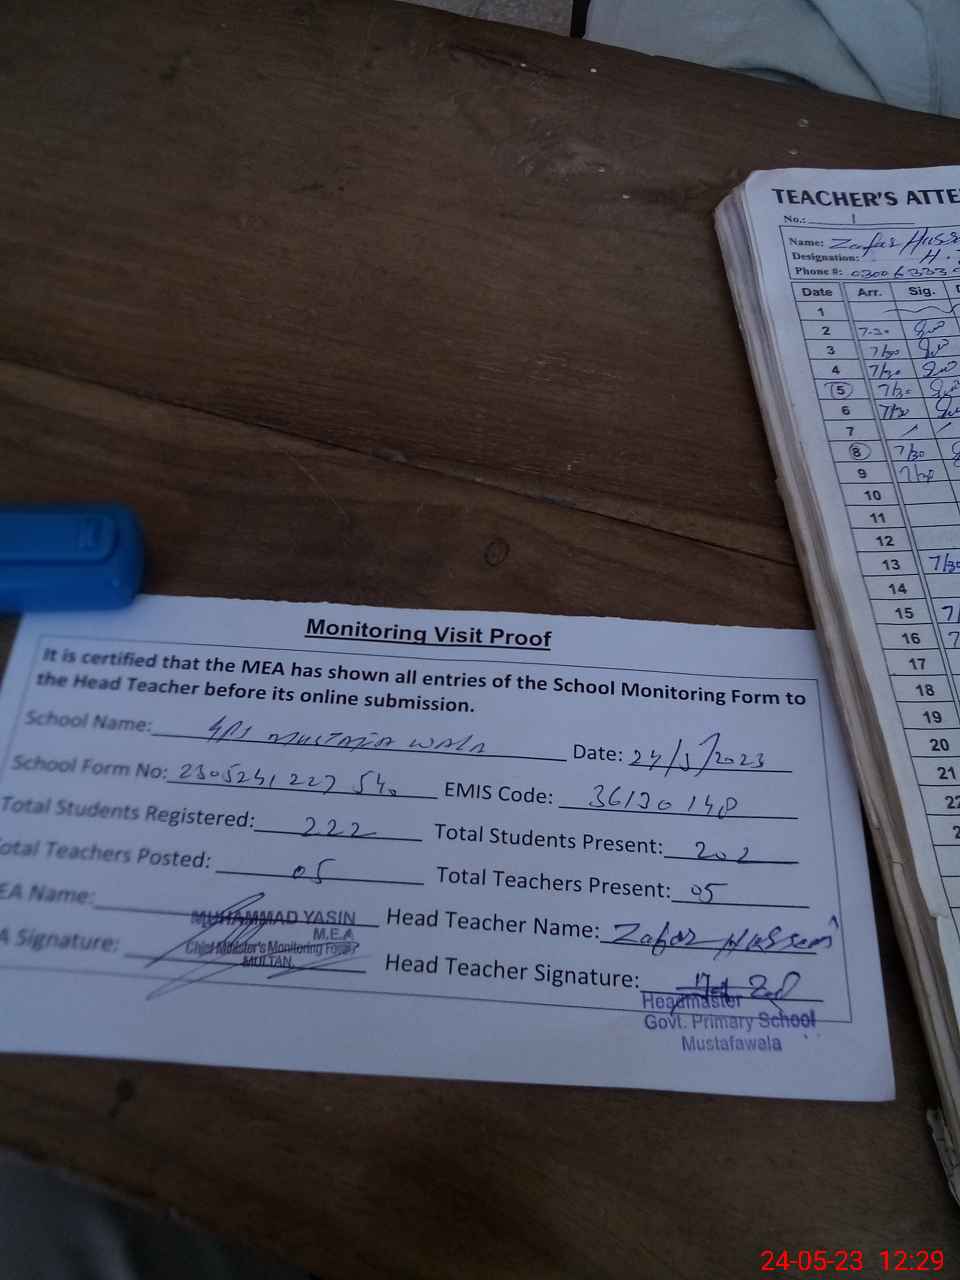 TEACHER'S ATTE
No.: 1
Name: Zafar Huss
Designation: H.
Phone #: 03006333
Date Arr. Sig.
1
2 7-30
3 7/30
4 7/30
5 7/30
6 7/30
7
8 7/30
9 7/30
10
11
12
13 7/30
14
15 7/
16 7
17
18
19
20
21
22
2
Monitoring Visit Proof
It is certified that the MEA has shown all entries of the School Monitoring Form to
the Head Teacher before its online submission.
School Name: GPS MUSTAFA WALA Date: 24/5/2023
School Form No: 2305241227540 EMIS Code: 36130148
Total Students Registered: 222 Total Students Present: 202
otal Teachers Posted: 05 Total Teachers Present: 05
EA Name: MUHAMMAD YASIN Head Teacher Name: Zafar Hussain
M.E.A
A Signature: Chief Minister's Monitoring Force Head Teacher Signature:
MULTAN
Headmaster
Govt. Primary School
Mustafawala
24-05-23 12:29